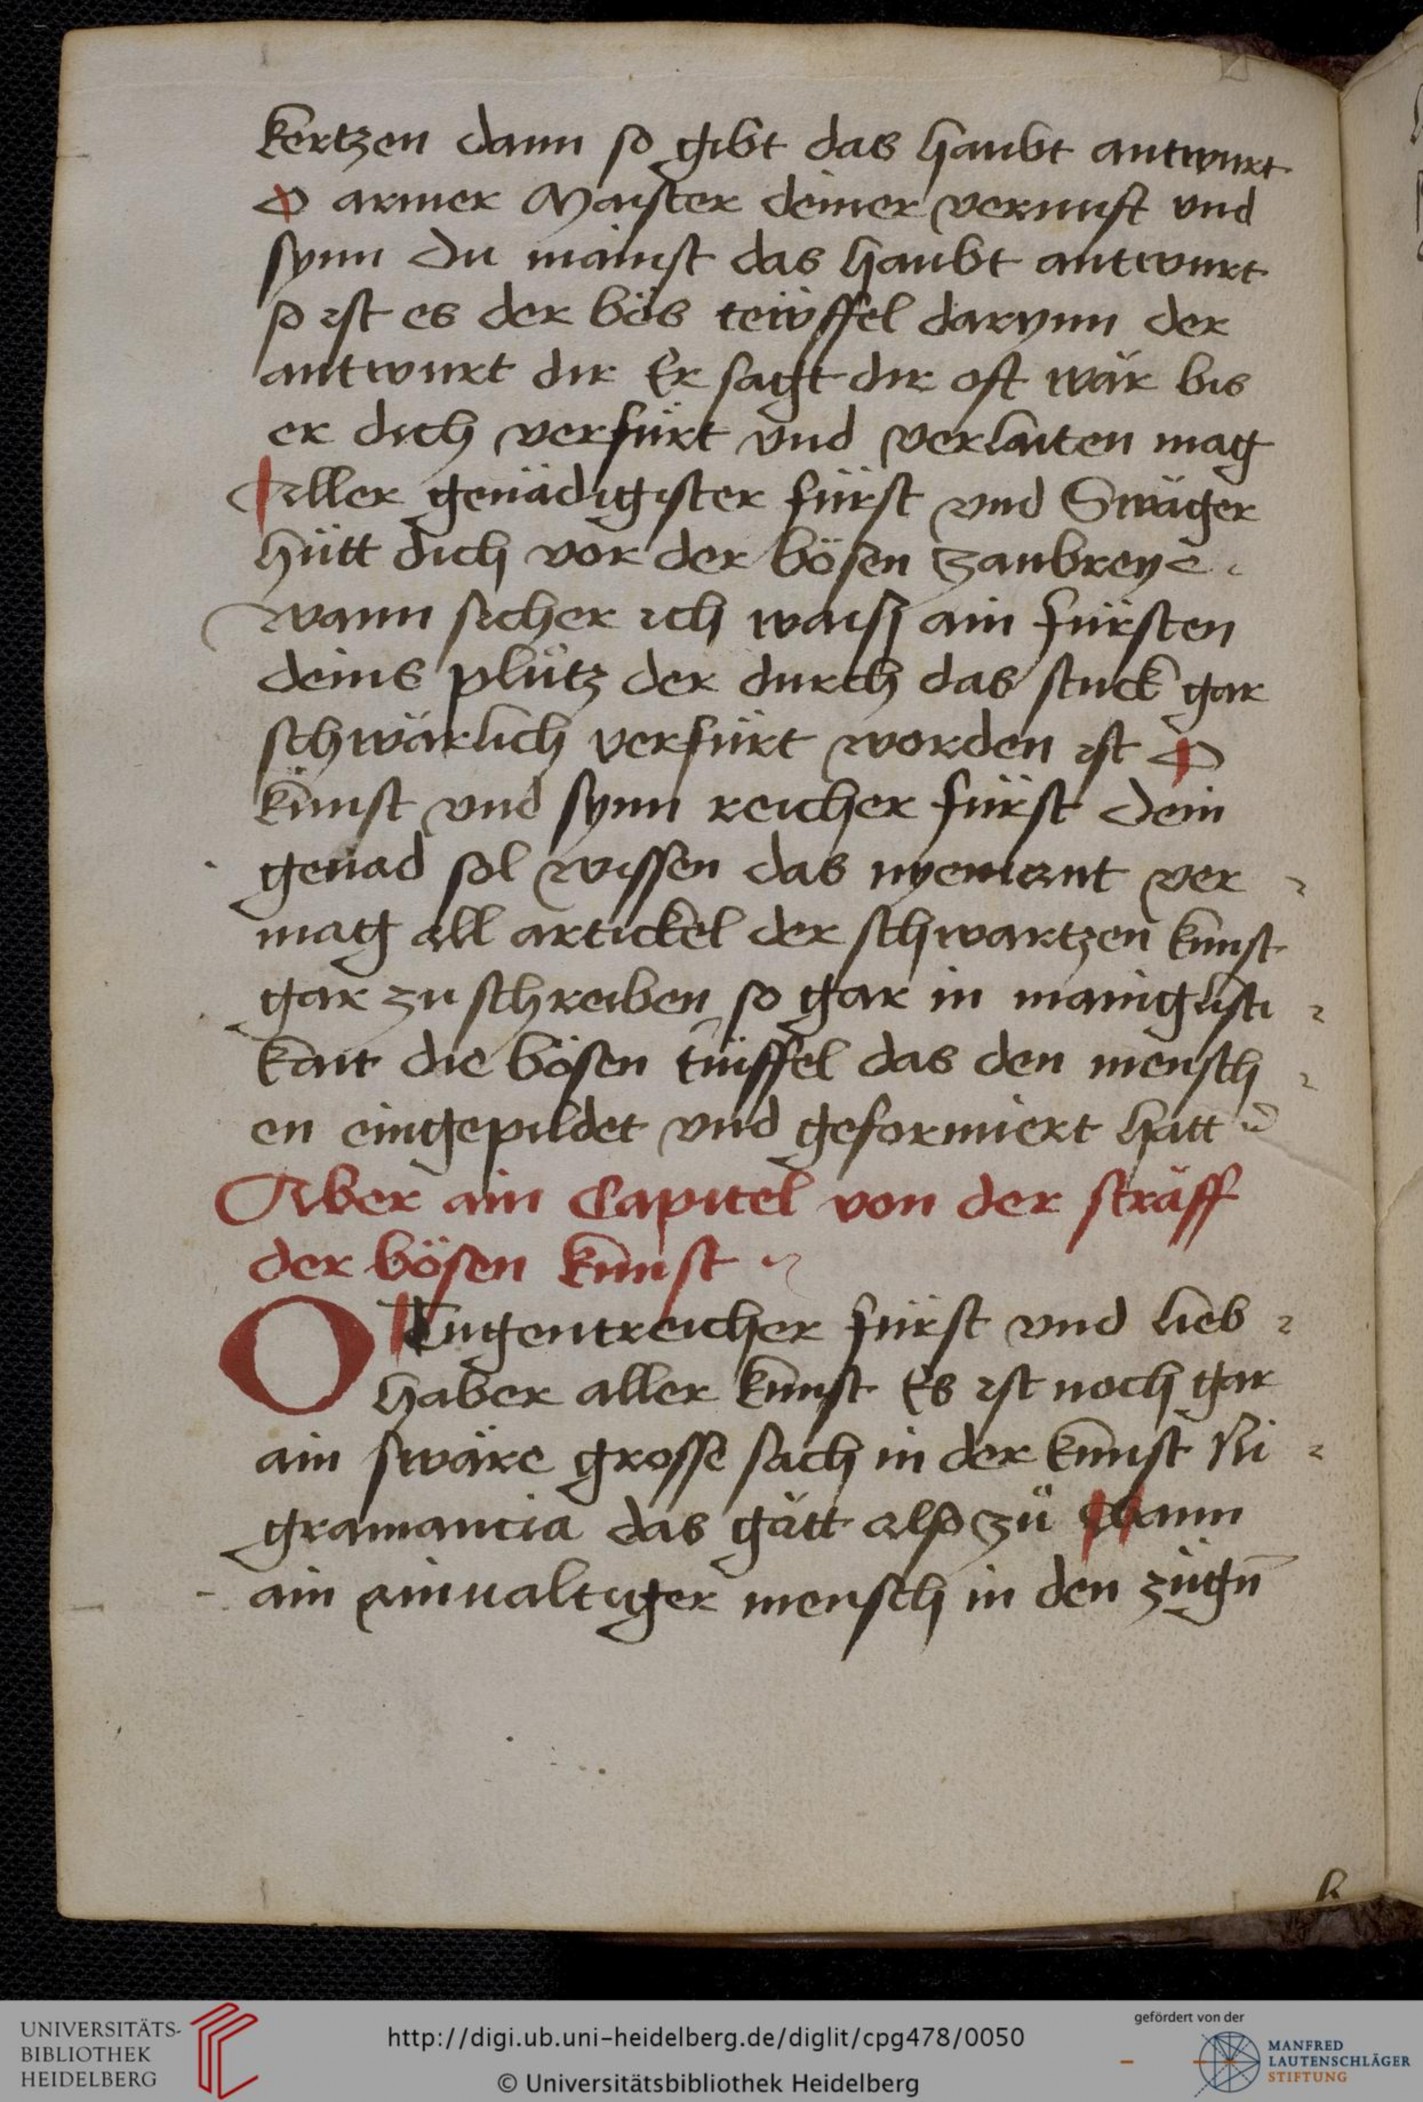 kertzen dann so gibt das haubt antwurt
O armer Maister deiner vernunft vnd
synn du mainst das haubt antwurt
so ist es der bös teẅffel darynn der
antwurt dir Er sagt dir oft wär bis
er dich verfürt vnd verlaiten mag
Aller genädigister fürst vnd Swäger
hütt dich vor der bösen zaubreye.
wann sicher ich waiß ain fürsten
deins plütz der durch das stuck gar
schwärlich verfürt worden ist O
künst vnd synn reicher fürst dein
genad sol wissen das nyemant ver
mag all artickel der schwartzen kunst
gar zu schreiben so gar in maniguslti
kait die bösen tüiffel das den mensch
en eingepildet vnd geformiert hatt
Aber ain Capitel von der sträff
der bösen kunst
O Tugentreicher fürst vnd lieb
haber aller kunst Es ist noch gar
ain swäre grosse sach in der kunst Ni
gramancia das gätt also zü Wann
ain ainualtiger mensch in den zügn̄
k
UNIVERSITÄTS-
BIBLIOTHEK
HEIDELBERG
http://digi.ub.uni-heidelberg.de/diglit/cpg478/0050
© Universitätsbibliothek Heidelberg
gefördert von der
MANFRED
LAUTENSCHLÄGER
STIFTUNG